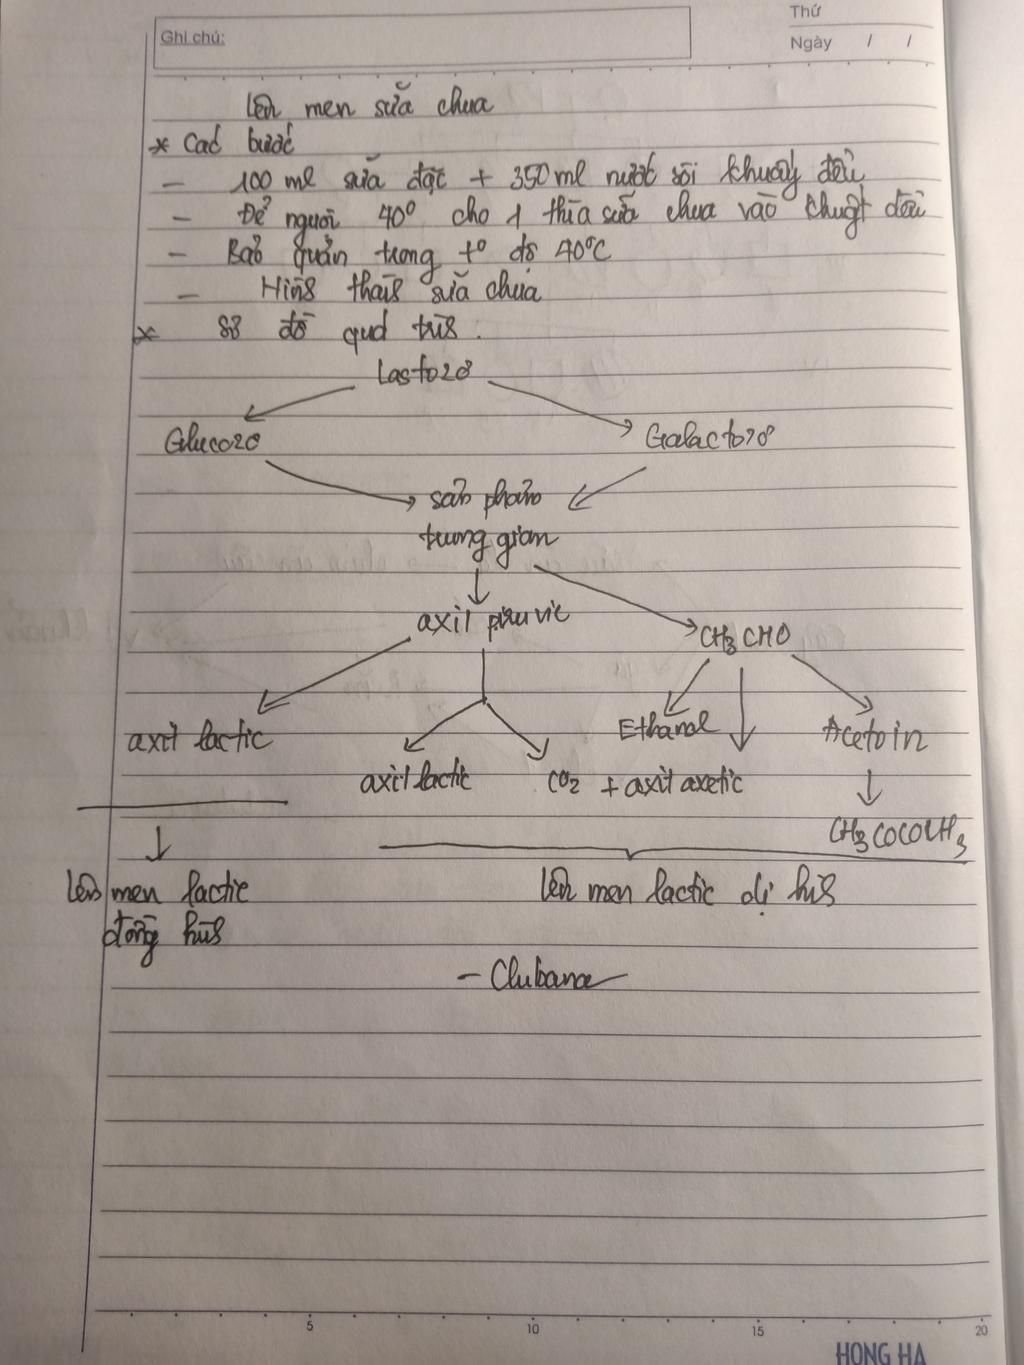 Thứ
Ghi chú:
Ngày / /
Lên men sữa chua
* Các bước
- 100 ml sữa đặc + 350 ml nước sôi khuấy đều
- Để nguội 40° cho 1 thìa sữa chua vào khuấy đều
- Bảo quản trong t° độ 40°C
- Hình thành sữa chua
* Sơ đồ quá trình.
Lactozơ
Glucozơ Galactozơ
sản phẩm
trung gian
axit piruvic CH3CHO
axit lactic Ethanol Acetoin
axit lactic CO2 + axit axetic
CH3COCOCH3
Lên men lactic lên men lactic dị hình
đồng hình
5 10 15 20
HONG HA